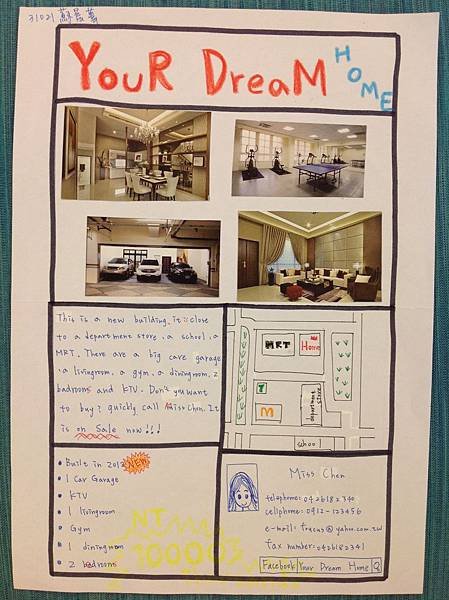 31021
YouR DreaM HOME
This is a new building. it is close
to a department store, a school, a
MRT. There are a big care garage
, a livingroom, a gym, a diningroom, 2
badrooms and KTV. Don't you want
to buy? quickly call Miss Chen. It
is on Sale now!!!
MRT
Home
7
m
department
store
shool
• Built in 2012 NEW
• 1 Car Garage
• KTV
• 1 livingroom
• Gym
• 1 diningroom
• 2 badrooms
NT
Miss Chen
telephone: 0426182340
cellphone: 0912-123456
e-mail: @yahoo.com.tw
fax number: 0426182341
Facebook Your Dream Home